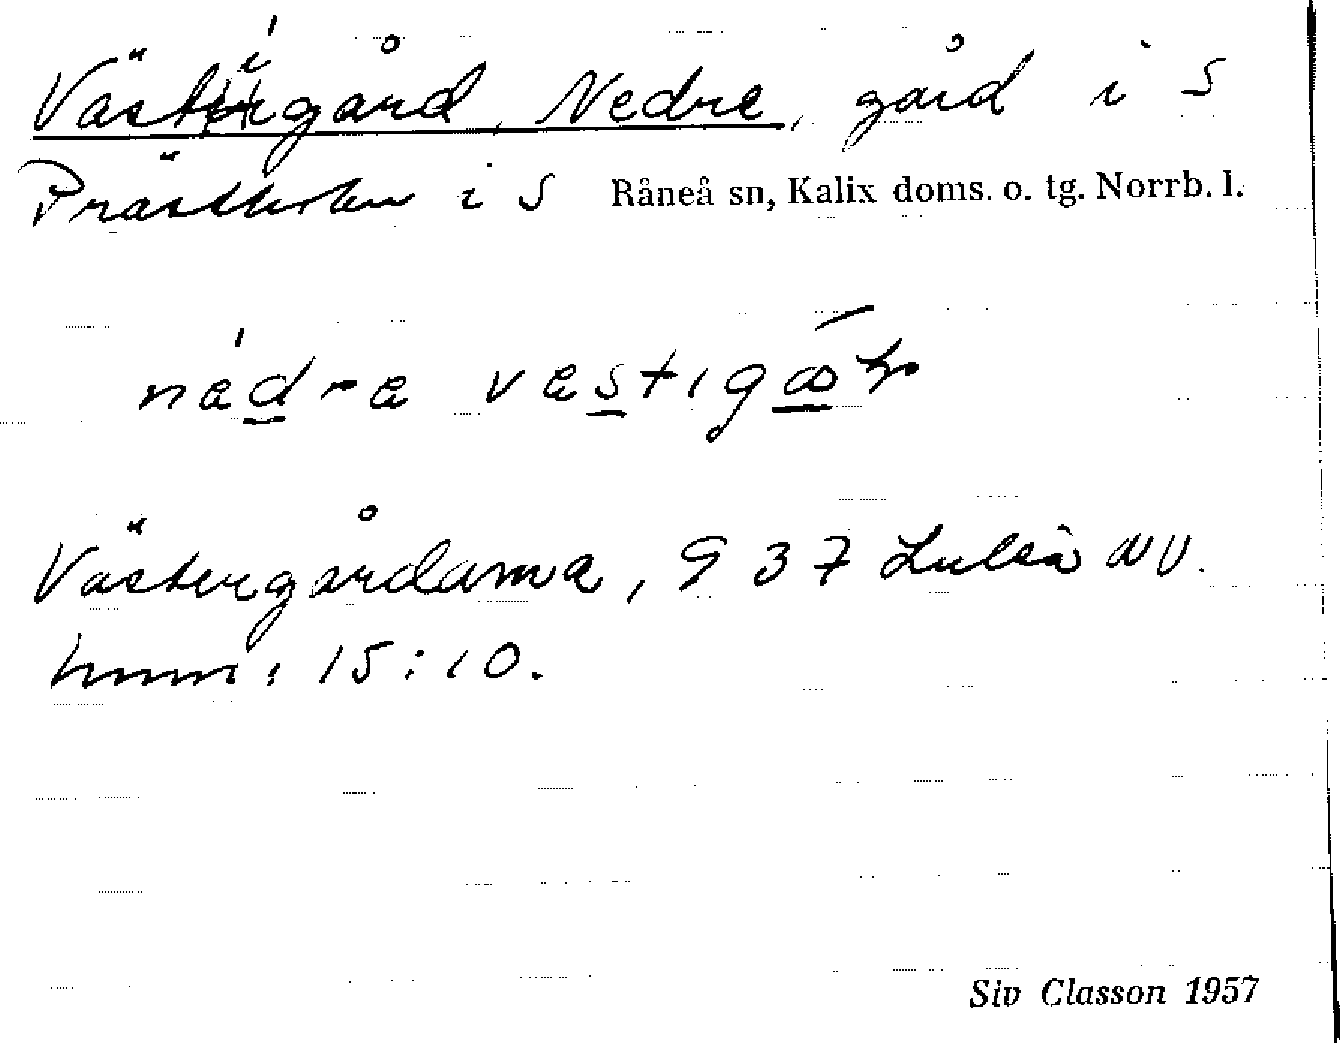 Västigård, Nedre, gård i S
Prästholm i S Råneå sn, Kalix doms. o. tg. Norrb. l.
nedre vestigå
Västergårdarna, 9 37 Luleå NV.
hmm: 15:10.
Siv Classon 1957